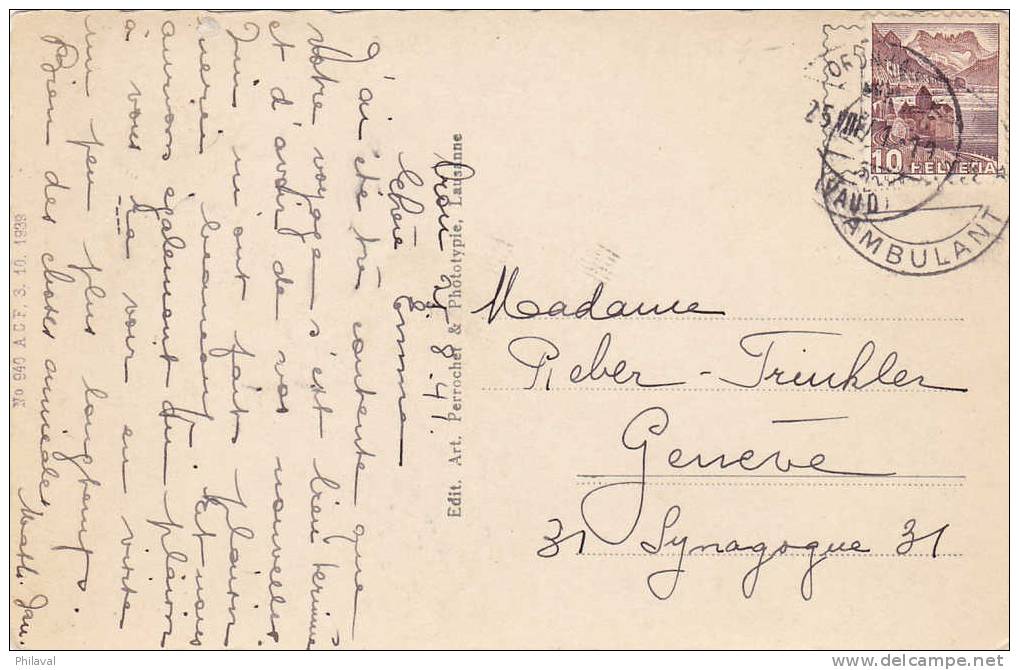 25. 8. 41.
Chère Emma
J'ai été très contente que
votre voyage s'est bien terminé
et d'avoir de vos nouvelles
qui m'ont fait plaisir
merci beaucoup. Et nous
aurons également du plaisir
à vous voir en visite
un peu plus longtemps.
Bien des choses amicales
No 940 A C F. 3. 10. 1939
Edit. Art. Perrochet & Phototypie, Lausanne
10 HELVETIA
(VAUD)
AMBULANT
Madame
Reber-Trinkler
Genève
31 Synagogue 31
Philaval
http://www.delcampe.net